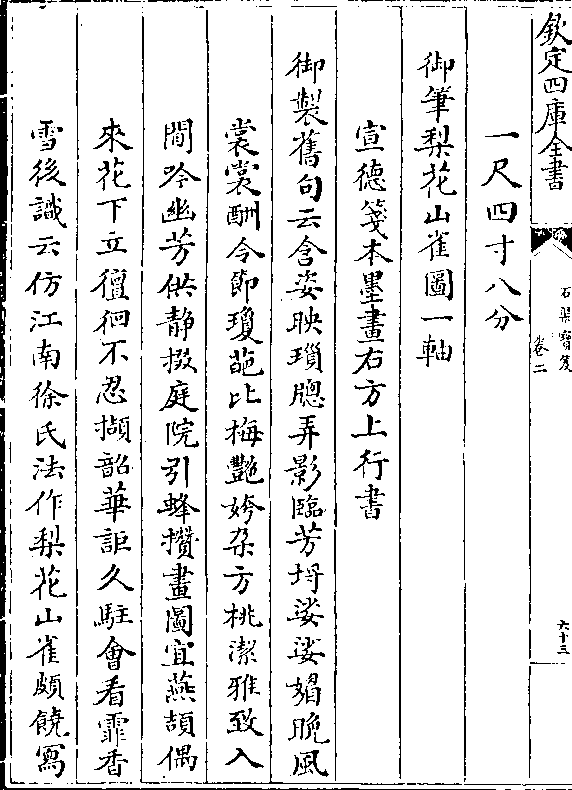 欽定四庫全書
石渠寶笈
卷二
六十三
一尺四寸八分
御筆梨花山雀圖一軸
宣德箋本墨畫右方上行書
御製舊句云含姿映瑣牕弄影臨芳埒娑娑媚晩風
裳裳酬令節瓊葩比梅艷姱朶方桃潔雅致入
間吟幽芳供静掇庭院引蜂攢畫圖宜燕頡偶
來花下立徸徊不忍擷韶華詎久駐會看霏香
雪後識云仿江南徐氏法作梨花山雀頗饒寫